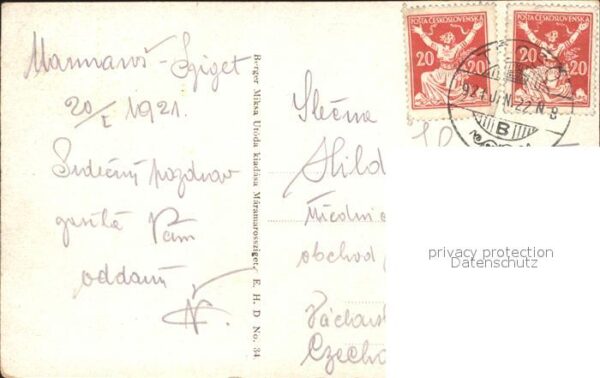 Marmaroš-Sziget
20/I 1921.
Srdečný pozdrav
posílá Vám
oddaný
N.
Berger Miksa Utóda kiadása Máramarossziget. E. H. D No. 34.
POŠTA ČESKOSLOVENSKÁ
20 20
POŠTA ČESKOSLOVENSKÁ
20 20
921 JUN. 22. N 8
B
Slečna
Hild
obchod
Václavsk
Czecho
privacy protection
Datenschutz